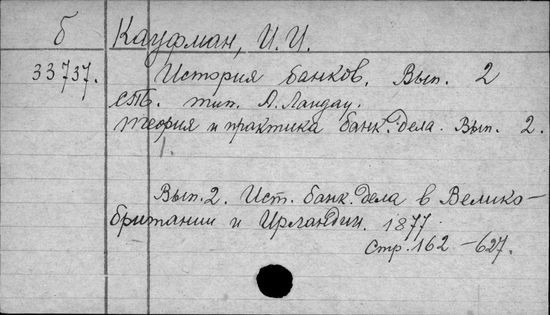 Б Кауфман, И. И.
33737. История банков. Вып. 2
СПб. тип. А. Ландау.
Теория и практика банк. дела. Вып. 2.
1.
Вып. 2. Ист. банк. дела в Велико-
британии и Ирландии. 1877.
Стр. 162-627.